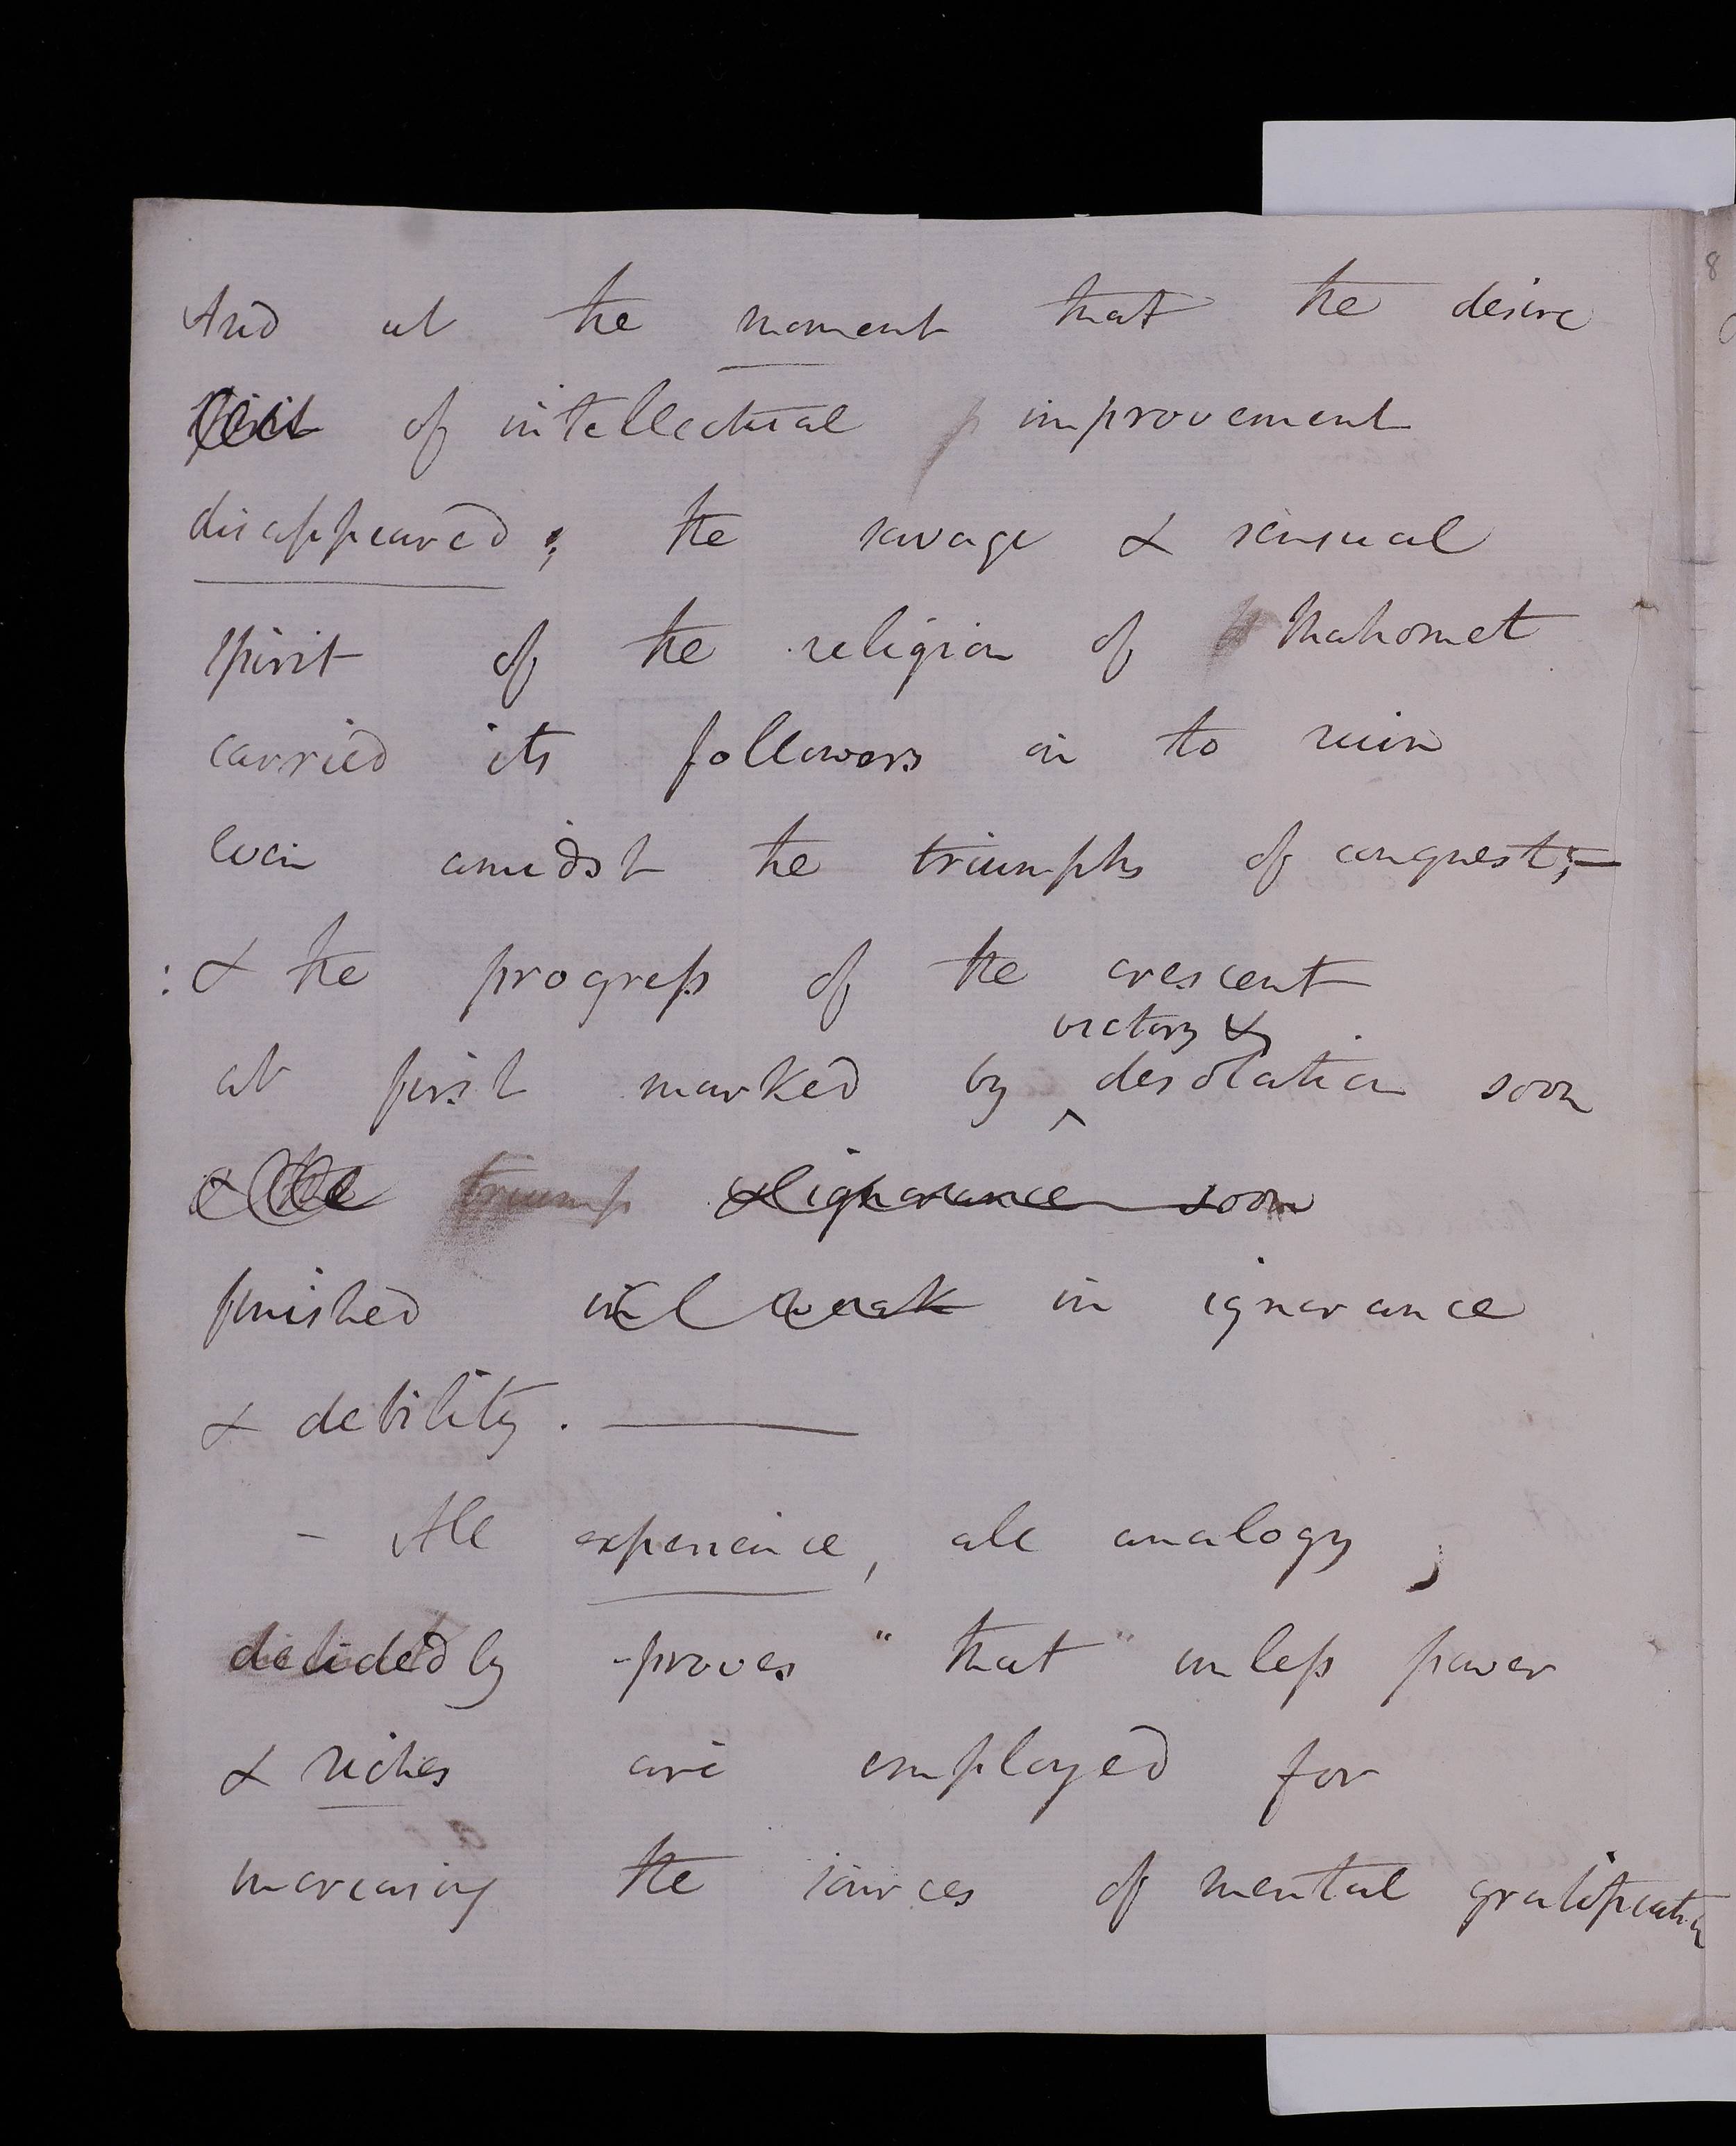 And at the moment that the desire
of intellectual improvement
disappeared; the savage & sensual
spirit of the religion of Mahomet
carried its followers on to ruin
even amidst the triumphs of conquest;—
:& the progress of the crescent
victory &
at first marked by ^ desolation soon
& the triump & ignorance soon
finished weak in ignorance
& debility. —
- All experience, all analogy,
decidedly proves "that" unless power
& riches are employed for
increasing the sources of mental gratification